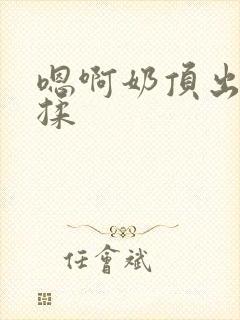 嗯啊奶頂出
揉
任會斌